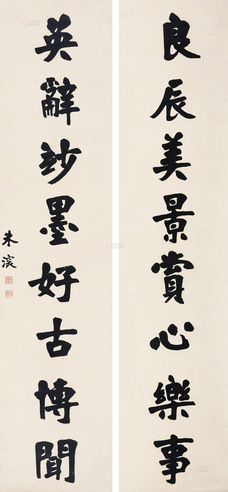 良辰美景賞心樂事
英辭妙墨好古博聞
朱滨